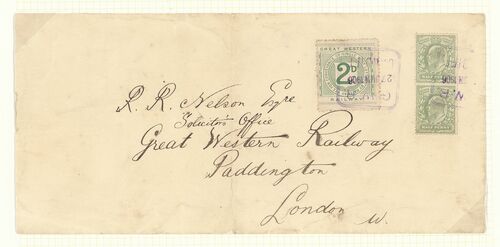 GREAT WESTERN
2D
RAILWAY
27 JUN 1906
G.W.R.
HALF PENNY
HALF PENNY
R. R. Nelson Esqre
Solicitors Office
Great Western Railway
Paddington
London W.